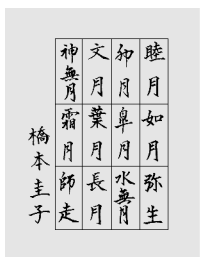 睦月
如月
弥生
卯月
皐月
水無月
文月
葉月
長月
神無月
霜月
師走
橋本圭子